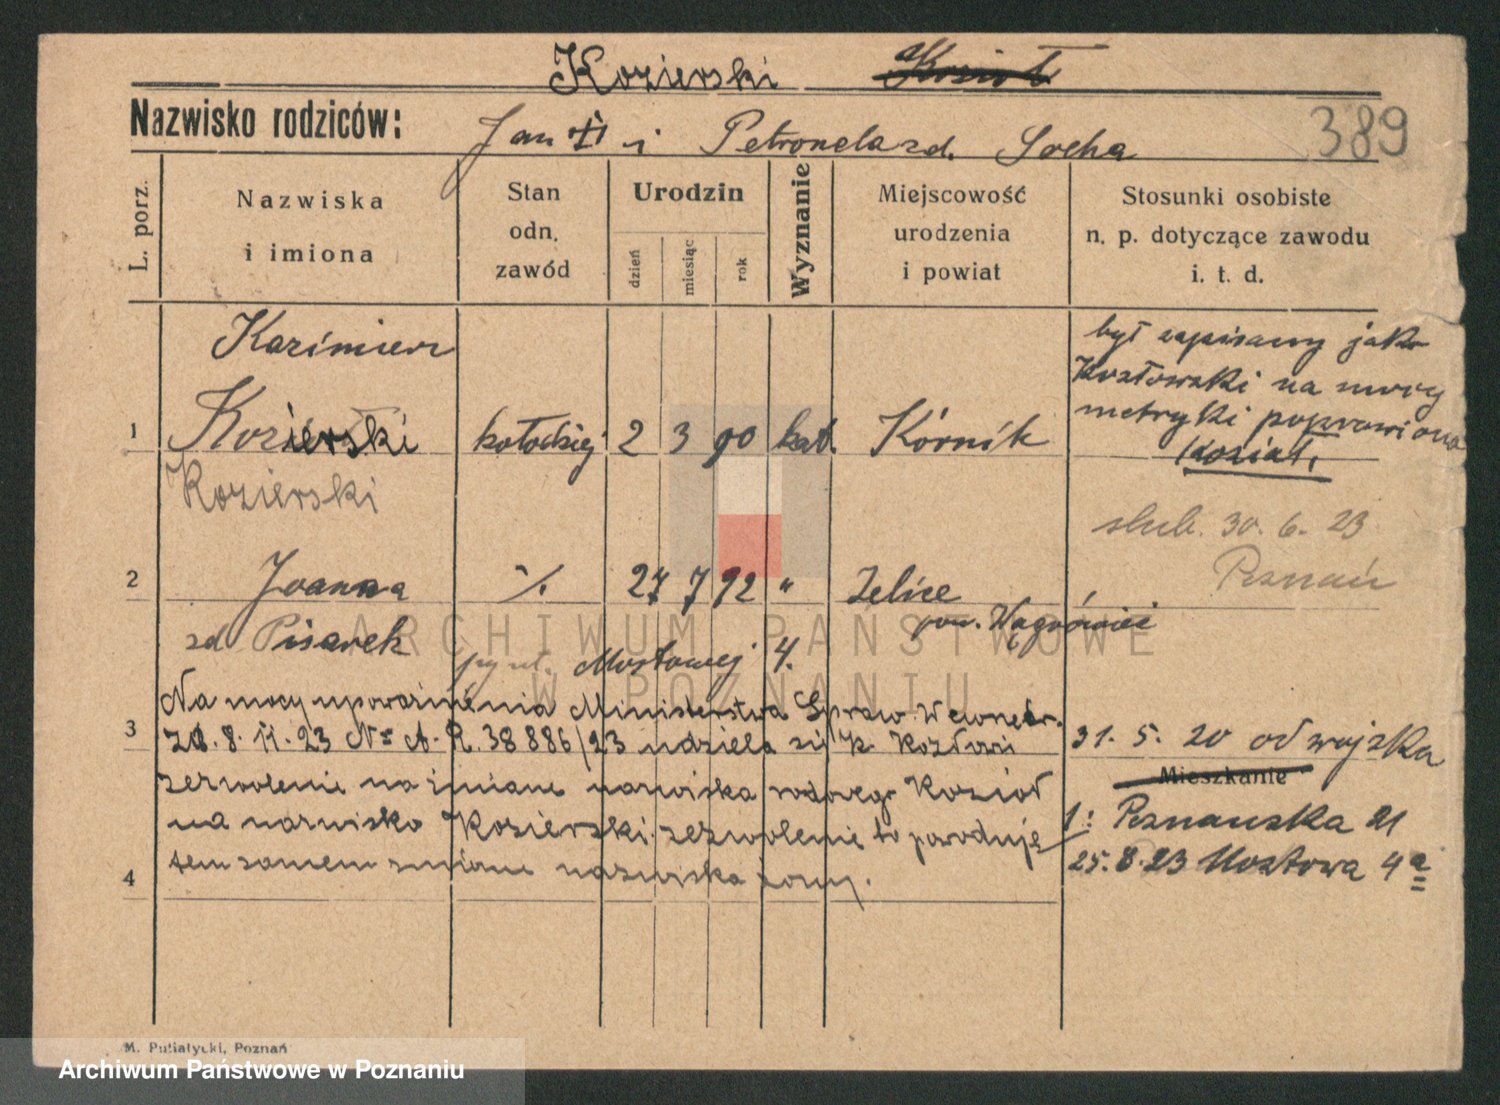 Kozierski Kozioł
Nazwisko rodziców: Jan i Petronela zd. Socha
389
L. porz.
Nazwiska
i imiona
Stan
odn.
zawód
Urodzin
dzień
miesiąc
rok
Wyznanie
Miejscowość
urodzenia
i powiat
Stosunki osobiste
n. p. dotyczące zawodu
i. t. d.
Kazimierz
1 Kozierski kołodziej 2 3 90 kat. Kórnik
Kozierski
był zapisany jako
Kozłowski na mocy
metryki poprawiono
Kozioł.
ślub. 30. 6. 23
Poznań
2 Joanna %. 27 7 92 " Zelice
pow. Wągrówiec
zd Pisarek
ul. Mostowej 4.
Na mocy upoważnienia Ministerstwa Spraw Wewnętr.
3 zd. 8. 11. 23 No A. R. 38886/23 udziela się K. Kozłowi
zezwolenie na zmianę nazwiska rodowego Kozioł
na nazwisko Kozierski. zezwolenie to powoduje
4 tem samem zmianę nazwiska żony.
31. 5. 20 od wojska
Mieszkanie
1: Poznanska 21
25. 8. 23 Mostowa 4a
M. Putiatycki, Poznań
ARCHIWUM PAŃSTWOWE
W POZNANIU
Archiwum Państwowe w Poznaniu